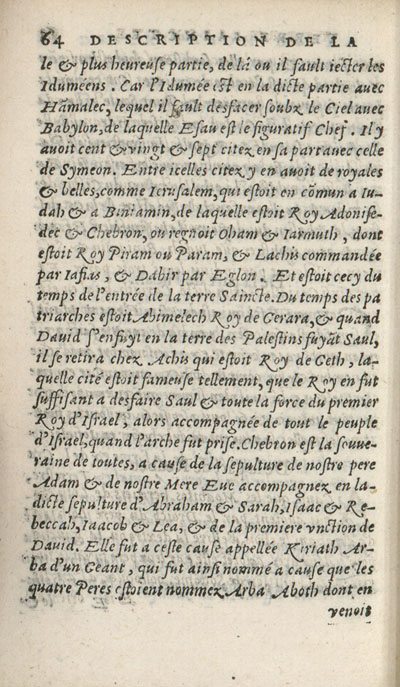 64 DESCRIPTION DE LA
le & plus heureuse partie, de là ou il fault iecter les
Idumeens. Car l'Idumée est en la dicte partie avec
Hamalec, lequel il fault desfacer soubz le Ciel avec
Babylon, de laquelle Esau est le figuratif Chef. Il y
avoit cent & vingt & sept citez en sa part avec celle
de Symeon. Entre icelles citez y en avoit de royales
& belles, comme Ierusalem, qui estoit en cõmun a Iu-
dah & a Biniamin, de laquelle estoit Roy Adonise-
dec & Chebron, ou regnoit Oham & Iarmuth, dont
estoit Roy Piram ou Param, & Lachis commandée
par Iafias, & Dabir par Eglon. Et estoit cecy du
temps de l'entrée de la terre Saincte. Du temps des pa
triarches estoit Abimelech Roy de Gerara, & quand
David s'enfuyt en la terre des Palestins fuyãt Saul,
il se retira chez Achis qui estoit Roy de Geth, la-
quelle cité estoit fameuse tellement, que le Roy en fut
suffisant a desfaire Saul & toute la force du premier
Roy d'Israel, alors accompagnée de tout le peuple
d'Israel, quand l'arche fut prise. Chebron est la souve-
raine de toutes, a cause de la sepulture de nostre pere
Adam & de nostre Mere Eve accompagnez en la-
dicte sepulture d'Abraham & Sarah, Isaac & Re-
beccah, Iaacob & Lea, & de la premiere vnction de
David. Elle fut a ceste cause appellée Kiriath Ar-
ba d'un Geant, qui fut ainsi nommé a cause que les
quatre Peres estoient nommez Arba Aboth dont en
venoit